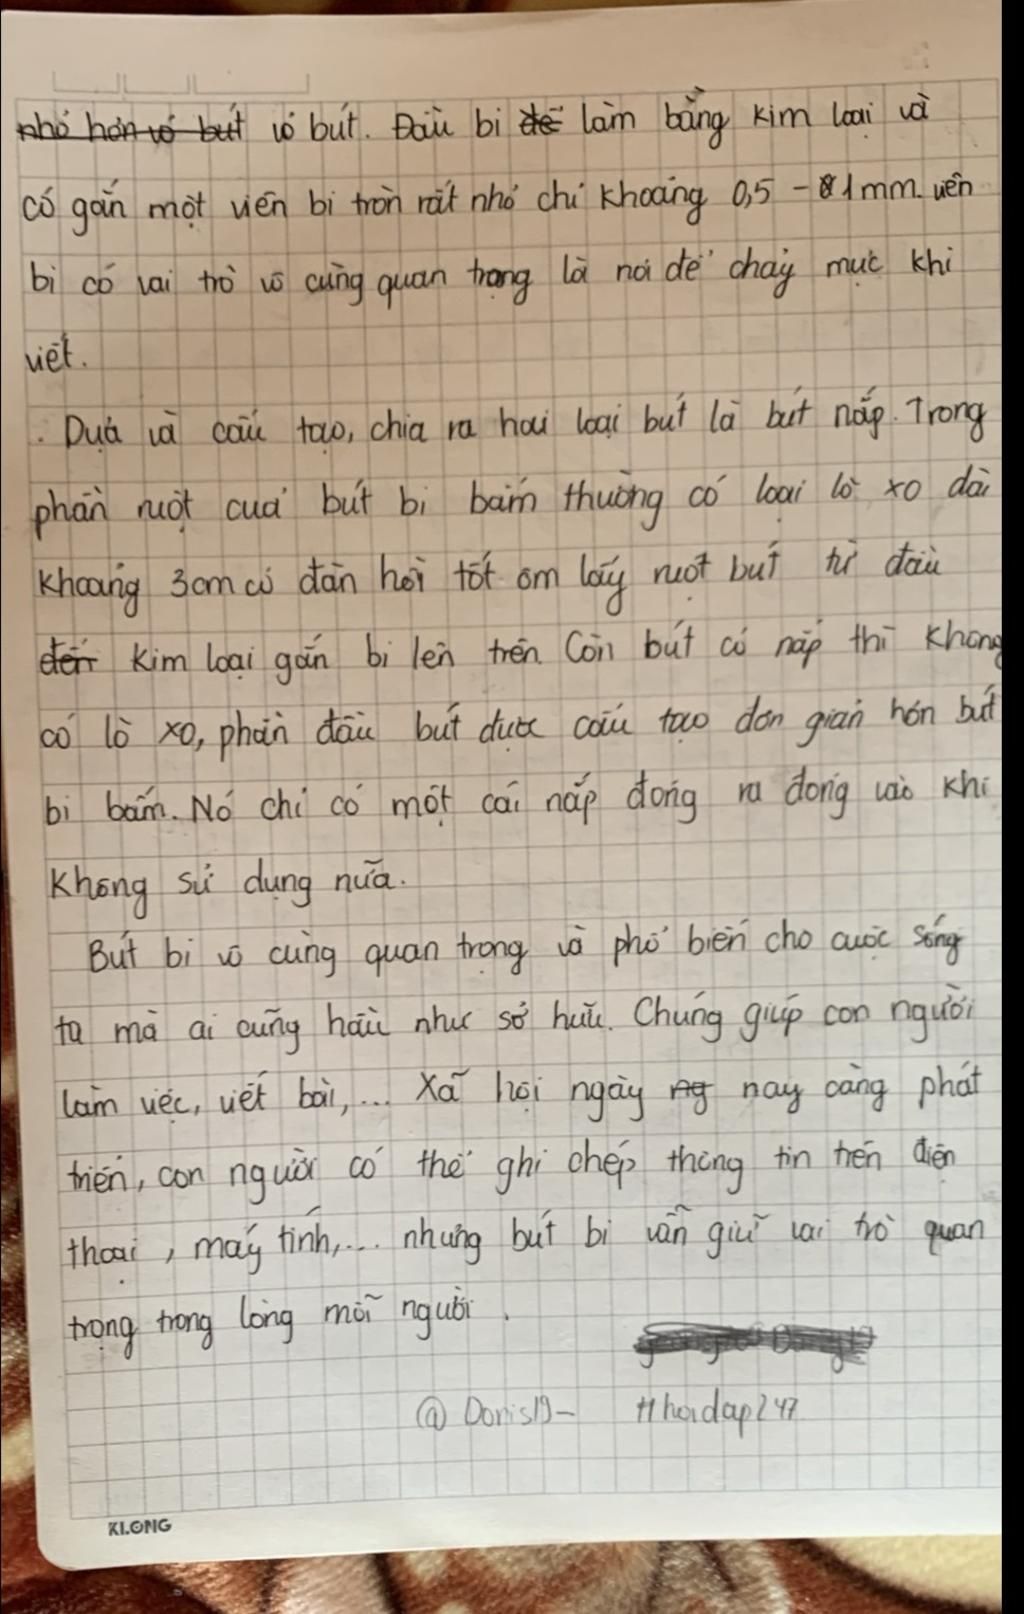 nhỏ hơn vỏ bút vỏ bút. Đầu bi để làm bằng kim loại và
có gắn một viên bi tròn rất nhỏ chỉ khoảng 0,5 - 1mm. viên
bi có vai trò vô cùng quan trọng là nơi để chảy mực khi
viết.
. Dựa và cấu tạo, chia ra hai loại bút là bút nắp. Trong
phần ruột của bút bi bấm thường có loại lò xo dài
khoảng 3cm có đàn hồi tốt ôm lấy ruột bút từ đầu
đến kim loại gắn bi lên trên. Còn bút có nắp thì không
có lò xo, phần đầu bút được cấu tạo đơn giản hơn bút
bi bấm. Nó chỉ có một cái nắp đóng ra đóng vào khi
không sử dụng nữa.
Bút bi vô cùng quan trọng và phổ biến cho cuộc sống
ta mà ai cũng hầu như sở hữu. Chúng giúp con người
làm việc, viết bài,... Xã hội ngày ng nay càng phát
triển, con người có thể ghi chép thông tin trên điện
thoại, máy tính,... nhưng bút bi vẫn giữ vai trò quan
trọng trong lòng mỗi người.
@Doris19- #hoidap247
KLONG